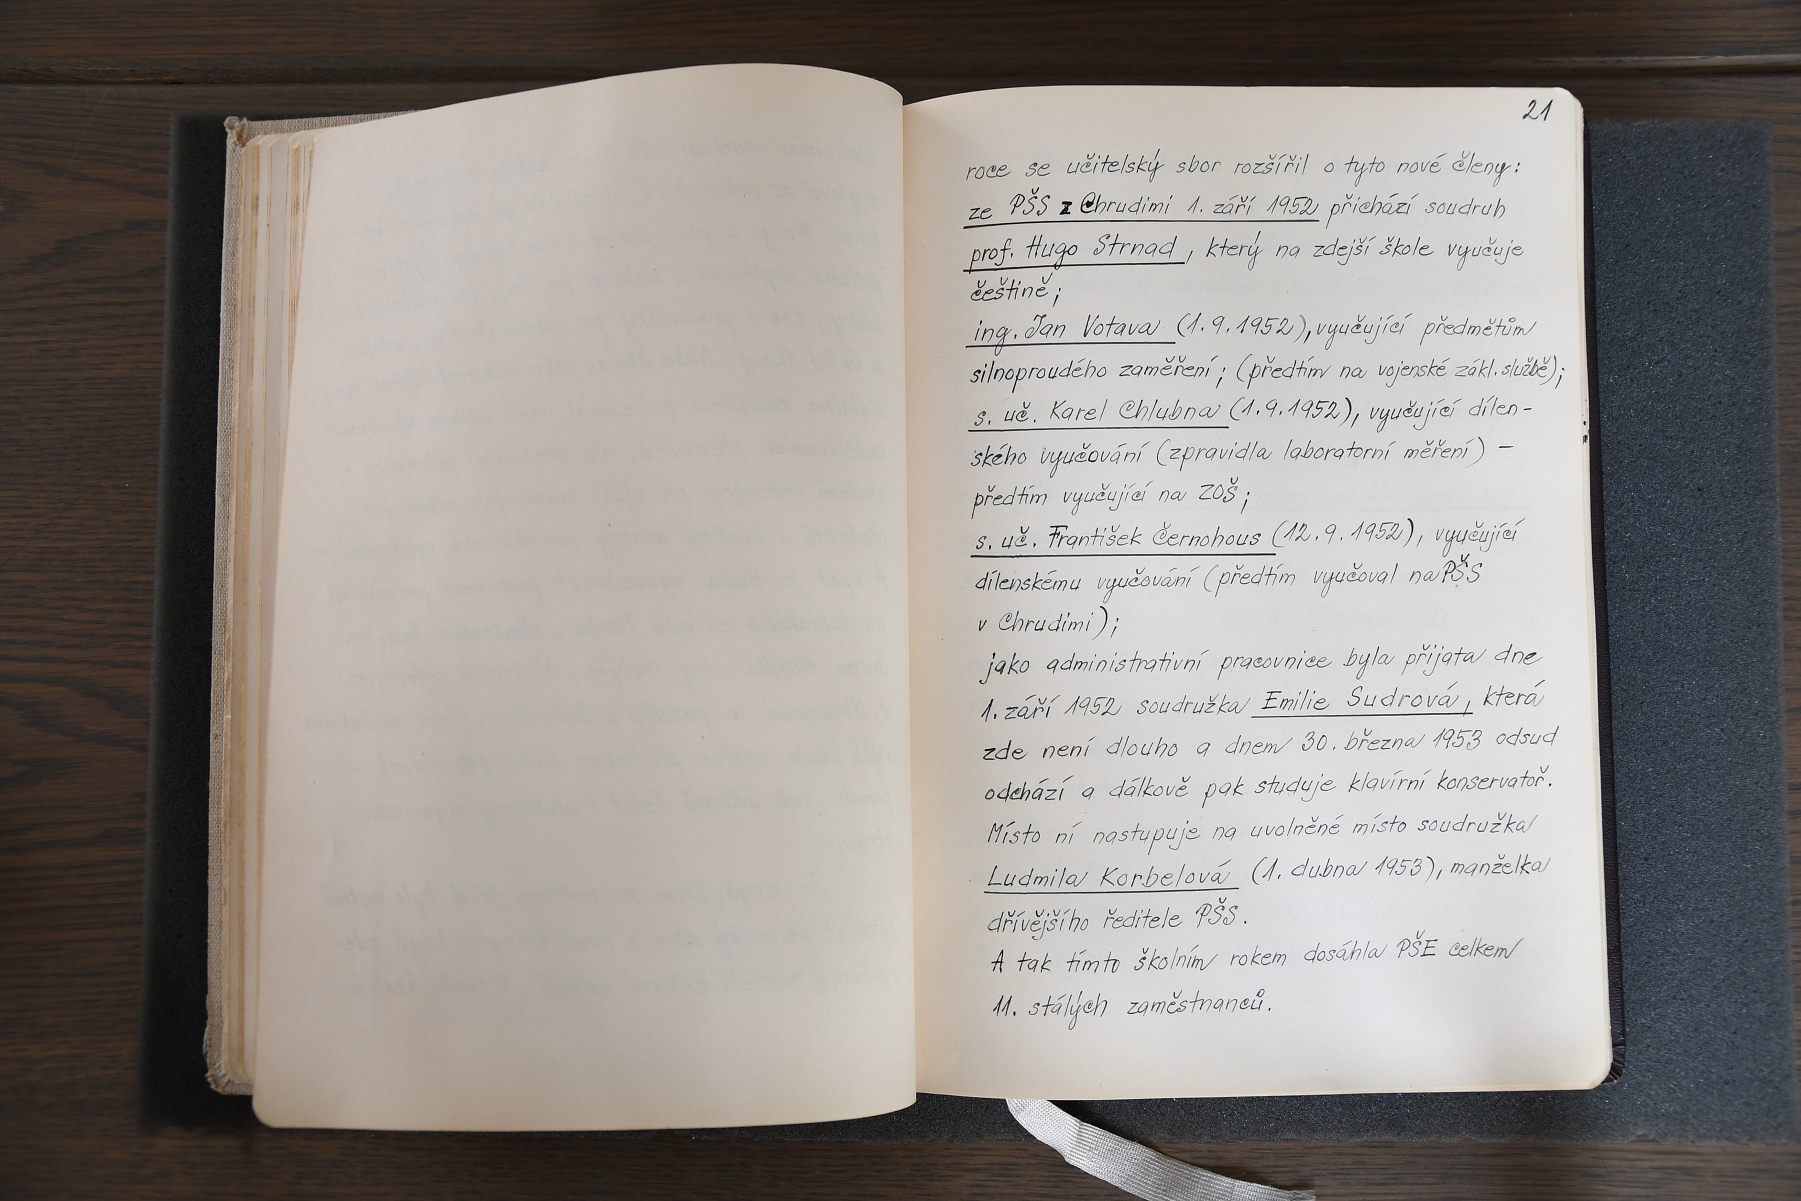 21
roce se učitelský sbor rozšířil o tyto nové členy:
ze PŠS z Chrudimi 1. září 1952 přichází soudruh
prof. Hugo Strnad, který na zdejší škole vyučuje
češtině;
ing. Jan Votava (1.9.1952), vyučující předmětům
silnoproudého zaměření; (předtím na vojenské zákl. službě);
s. uč. Karel Chlubna (1.9.1952), vyučující dílen-
ského vyučování (zpravidla laboratorní měření) –
předtím vyučující na ZOŠ;
s. uč. František Černohous (12.9.1952), vyučující
dílenskému vyučování (předtím vyučoval na PŠS
v Chrudimi);
jako administrativní pracovnice byla přijata dne
1. září 1952 soudružka Emilie Sudrová, která
zde není dlouho a dnem 30. března 1953 odsud
odchází a dálkově pak studuje klavírní konservatoř.
Místo ní nastupuje na uvolněné místo soudružka
Ludmila Korbelová (1. dubna 1953), manželka
dřívějšího ředitele PŠS.
A tak tímto školním rokem dosáhla PŠE celkem
11. stálých zaměstnanců.